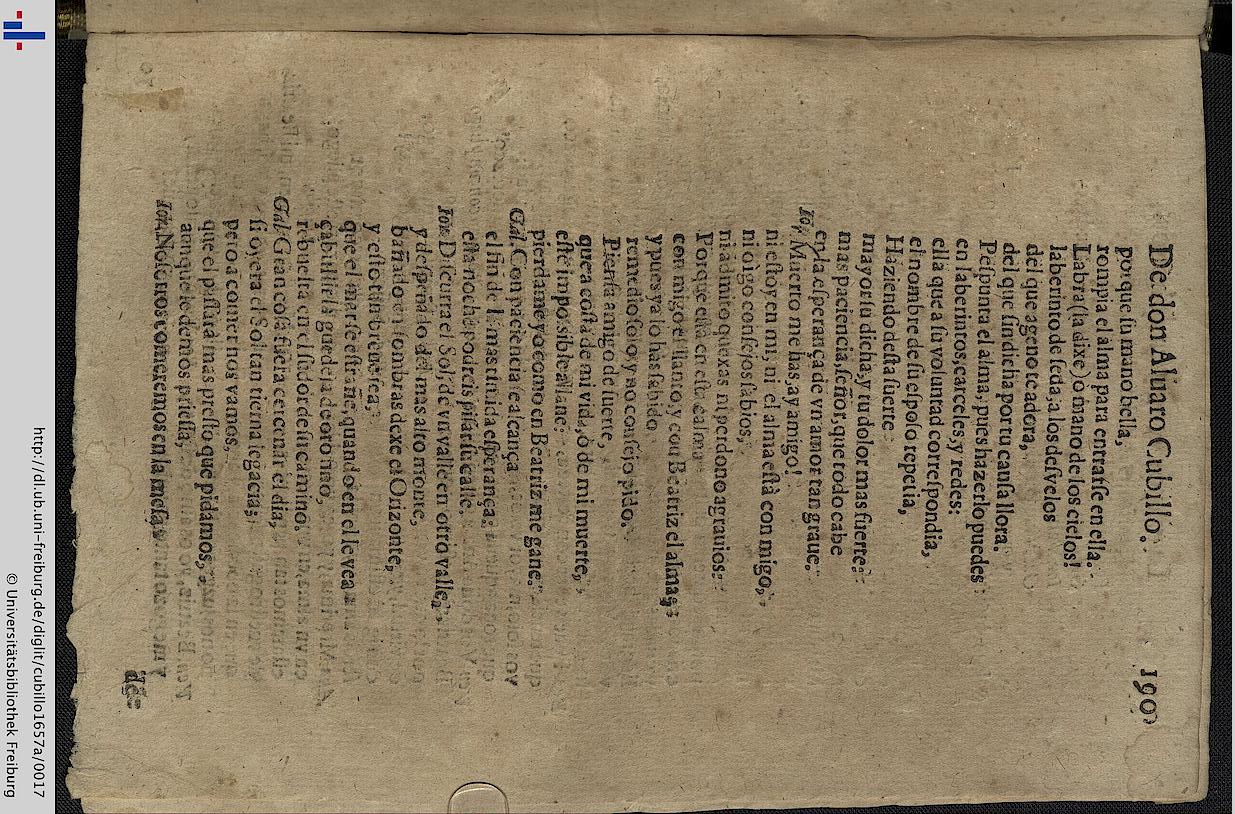 De don Aluaro Cubillo. 190
porque su mano bella,
rompia el alma para entratse en ella.
Labra (la dixe) o mano de los cielos!
laberinto de seda, a los desvelos
del que ageno te adora,
del que sin dicha por tu causa llora.
Pespunta el alma, pues hazerlo puedes
en laberintos, carceles, y redes:
ella que a su voluntad correspondia,
el nombre de su esposo repetia,
Haziendo desta suerte
mayor tu dicha, y tu dolor mas fuerte.
mas paciencia, señor, que todo cabe
en la esperança de vn amor tan graue.
Ior. Muerto me has, ay amigo!
ni estoy en mi, ni el alma està con migo,
ni oigo consejos sabios,
ni admito quexas ni perdono agrauios.
Porque està en esta calma
con migo el llanto, y con Beatriz el alma;
y pues ya lo has sabido
remedio solo, y no consejo pido.
Piensa amigo de suerte,
que a costa de mi vida, o de mi muerte,
este impossible allane:
pierdame yo como en Beatriz me gane.
Gal. Con paciencia se alcança
el fin de la mas esperança:
esta noche podreis pisar su calle.
Ior. Discurra el Sol de vn valle en otro valle,
y despeñado del mas alto monte,
bañado en sombras dexe el Orizonte,
y esto tan breue sea,
que el mar se estrañe, quando en el le vea
çabullirla guedeja de oro fino,
rebuelta en el sudor de su camino.
Gal. Gran cosa fuera cercenar el dia,
si oyera el Sol tan tierna legacia;
pero a comer nos vamos,
que el passarà mas presto que pidamos,
aunque le demos priessa,
Ior. No lo nos comeremos en la mesa,
de-
http://dl.ub.uni-freiburg.de/diglit/cubillo1657a/0017
© Universitätsbibliothek Freiburg